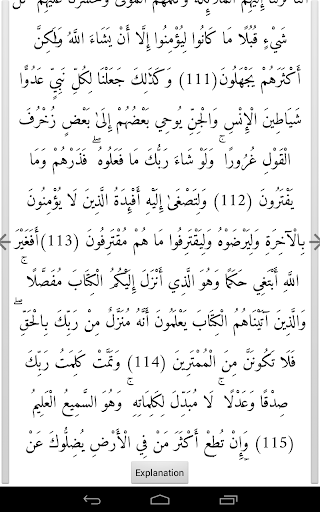 شَيْءٍ قُبُلًا مَا كَانُوا لِيُؤْمِنُوا إِلَّا أَنْ يَشَاءَ اللَّهُ وَلَٰكِنَّ
أَكْثَرَهُمْ يَجْهَلُونَ(111) وَكَذَٰلِكَ جَعَلْنَا لِكُلِّ نَبِيٍّ عَدُوًّا
شَيَاطِينَ الْإِنْسِ وَالْجِنِّ يُوحِي بَعْضُهُمْ إِلَىٰ بَعْضٍ زُخْرُفَ
الْقَوْلِ غُرُورًا ۚ وَلَوْ شَاءَ رَبُّكَ مَا فَعَلُوهُ ۖ فَذَرْهُمْ وَمَا
يَفْتَرُونَ (112) وَلِتَصْغَىٰ إِلَيْهِ أَفْئِدَةُ الَّذِينَ لَا يُؤْمِنُونَ
بِالْآخِرَةِ وَلِيَرْضَوْهُ وَلِيَقْتَرِفُوا مَا هُمْ مُقْتَرِفُونَ (113)أَفَغَيْرَ
اللَّهِ أَبْتَغِي حَكَمًا وَهُوَ الَّذِي أَنْزَلَ إِلَيْكُمُ الْكِتَابَ مُفَصَّلًا ۚ
وَالَّذِينَ آتَيْنَاهُمُ الْكِتَابَ يَعْلَمُونَ أَنَّهُ مُنَزَّلٌ مِنْ رَبِّكَ بِالْحَقِّ ۖ
فَلَا تَكُونَنَّ مِنَ الْمُمْتَرِينَ (114) وَتَمَّتْ كَلِمَتُ رَبِّكَ
صِدْقًا وَعَدْلًا ۚ لَا مُبَدِّلَ لِكَلِمَاتِهِ ۚ وَهُوَ السَّمِيعُ الْعَلِيمُ
(115) وَإِنْ تُطِعْ أَكْثَرَ مَنْ فِي الْأَرْضِ يُضِلُّوكَ عَنْ
Explanation